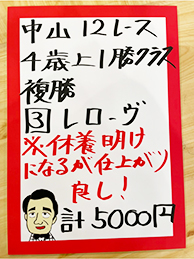 中山12レース
4歳上1勝クラス
複勝
③レローヴ
※休養明け
になるが仕上がり
良し！
計5000円